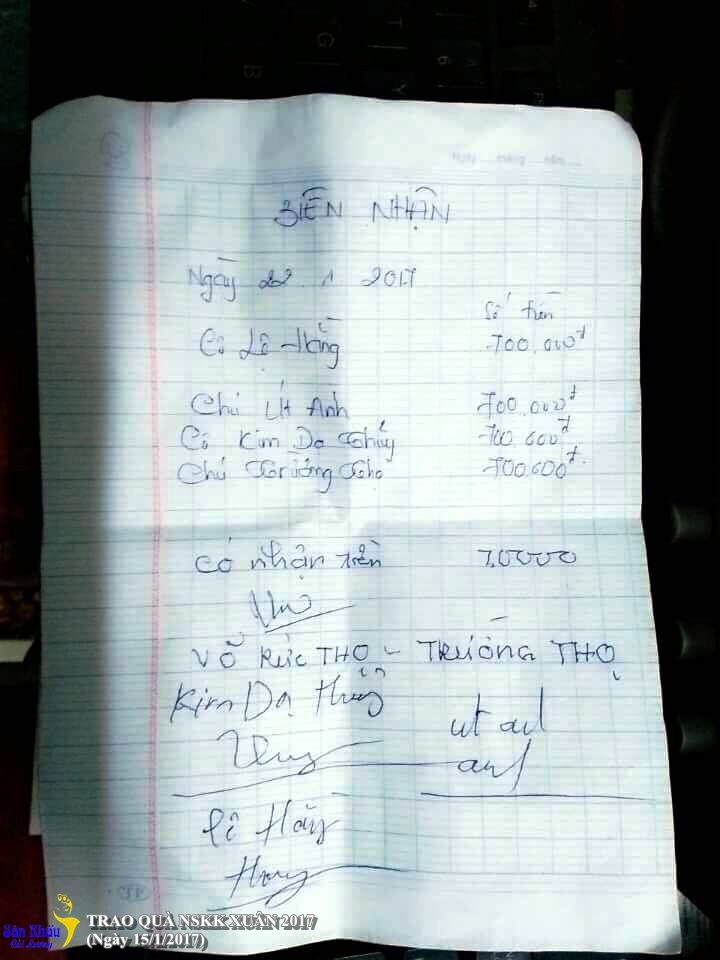 Ngày tháng năm
BIÊN NHẬN
Ngày 22 1 2017
Số tiền
Cô Lệ Hằng 700.000đ
Chú Út Anh 700.000đ
Cô Kim Dạ Thủy 700.000đ
Chú Trường Thọ 700.000đ
Có nhận tiền 70000
VÕ ĐỨC THỌ - TRƯỜNG THỌ
Kim Dạ Thủy
út anh
Lê Hằng
Sân Khấu
Cải Lương
TRAO QUÀ NSKK XUÂN 2017
(Ngày 15/1/2017)